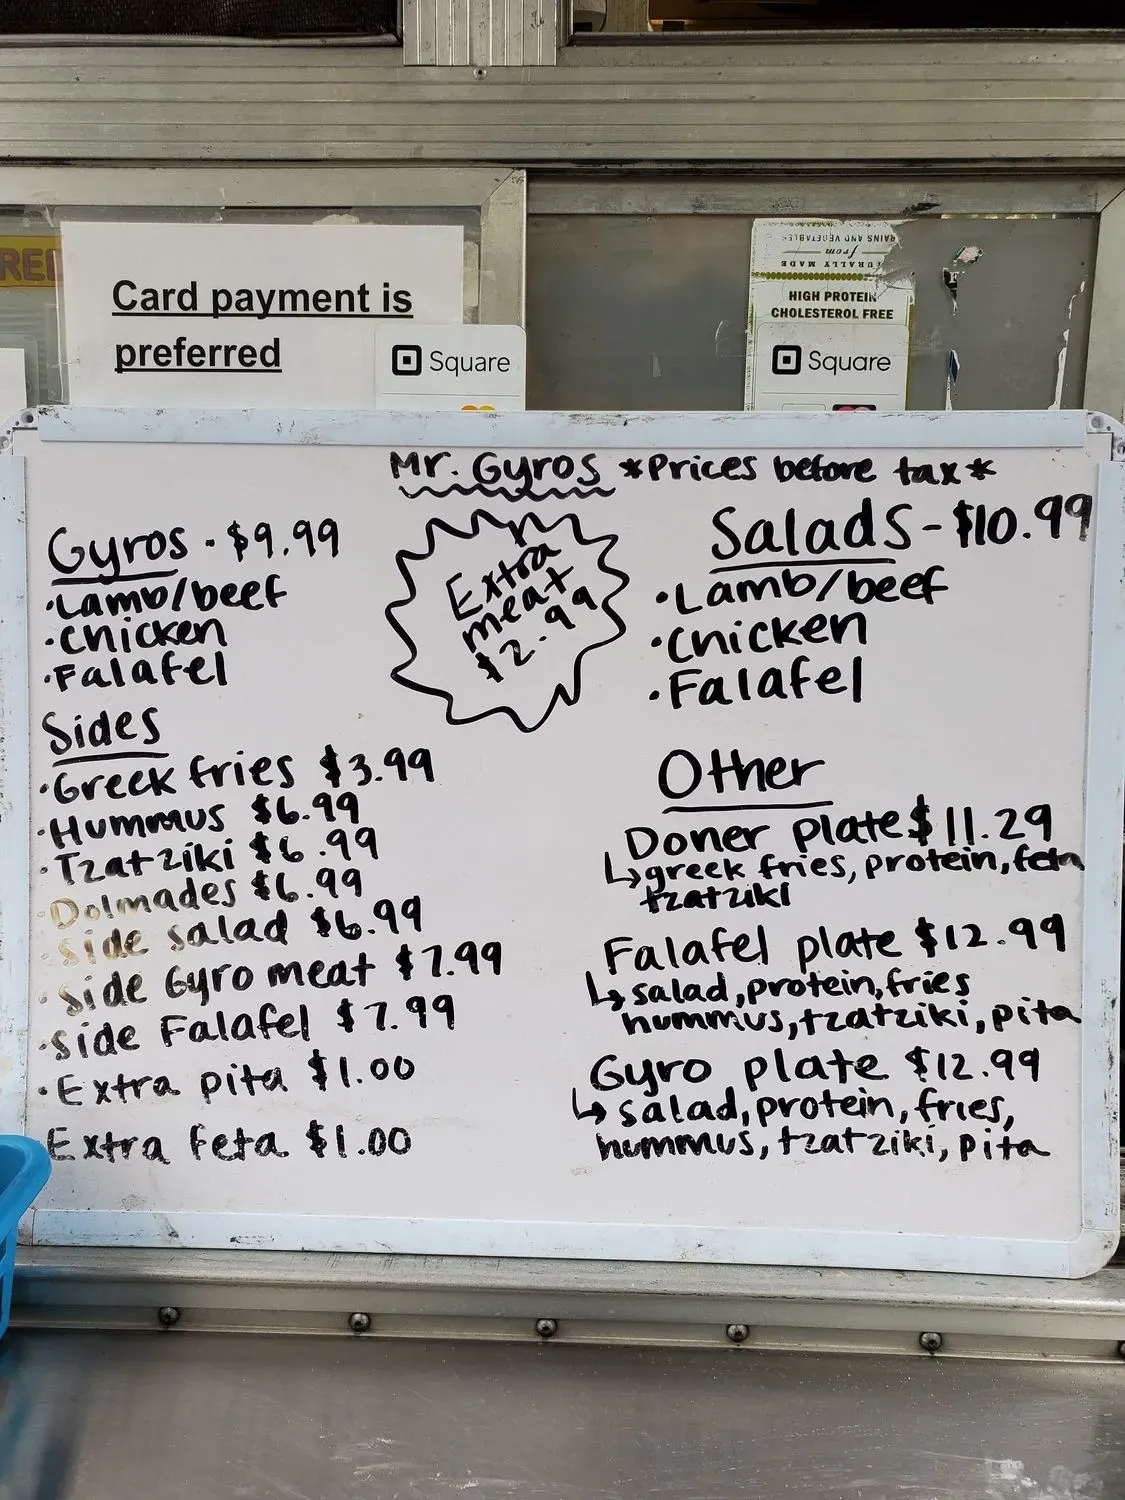 Card payment is
preferred
Square
RAINS AND VEGETABLES
from
URALLY MADE
HIGH PROTEIN
CHOLESTEROL FREE
Square
Mr. Gyros *Prices before tax*
Gyros - $9.99
• Lamb/beef
• Chicken
• Falafel
Extra
meat
$2.99
Salads - $10.99
• Lamb/beef
• Chicken
• Falafel
Sides
• Greek fries $3.99
• Hummus $6.99
• Tzatziki $6.99
• Dolmades $6.99
• Side salad $6.99
• Side Gyro meat $7.99
• Side Falafel $7.99
• Extra pita $1.00
Extra feta $1.00
Other
Doner plate $11.29
↳ greek fries, protein, feta
tzatziki
Falafel plate $12.99
↳ salad, protein, fries
hummus, tzatziki, pita
Gyro plate $12.99
↳ salad, protein, fries,
hummus, tzatziki, pita